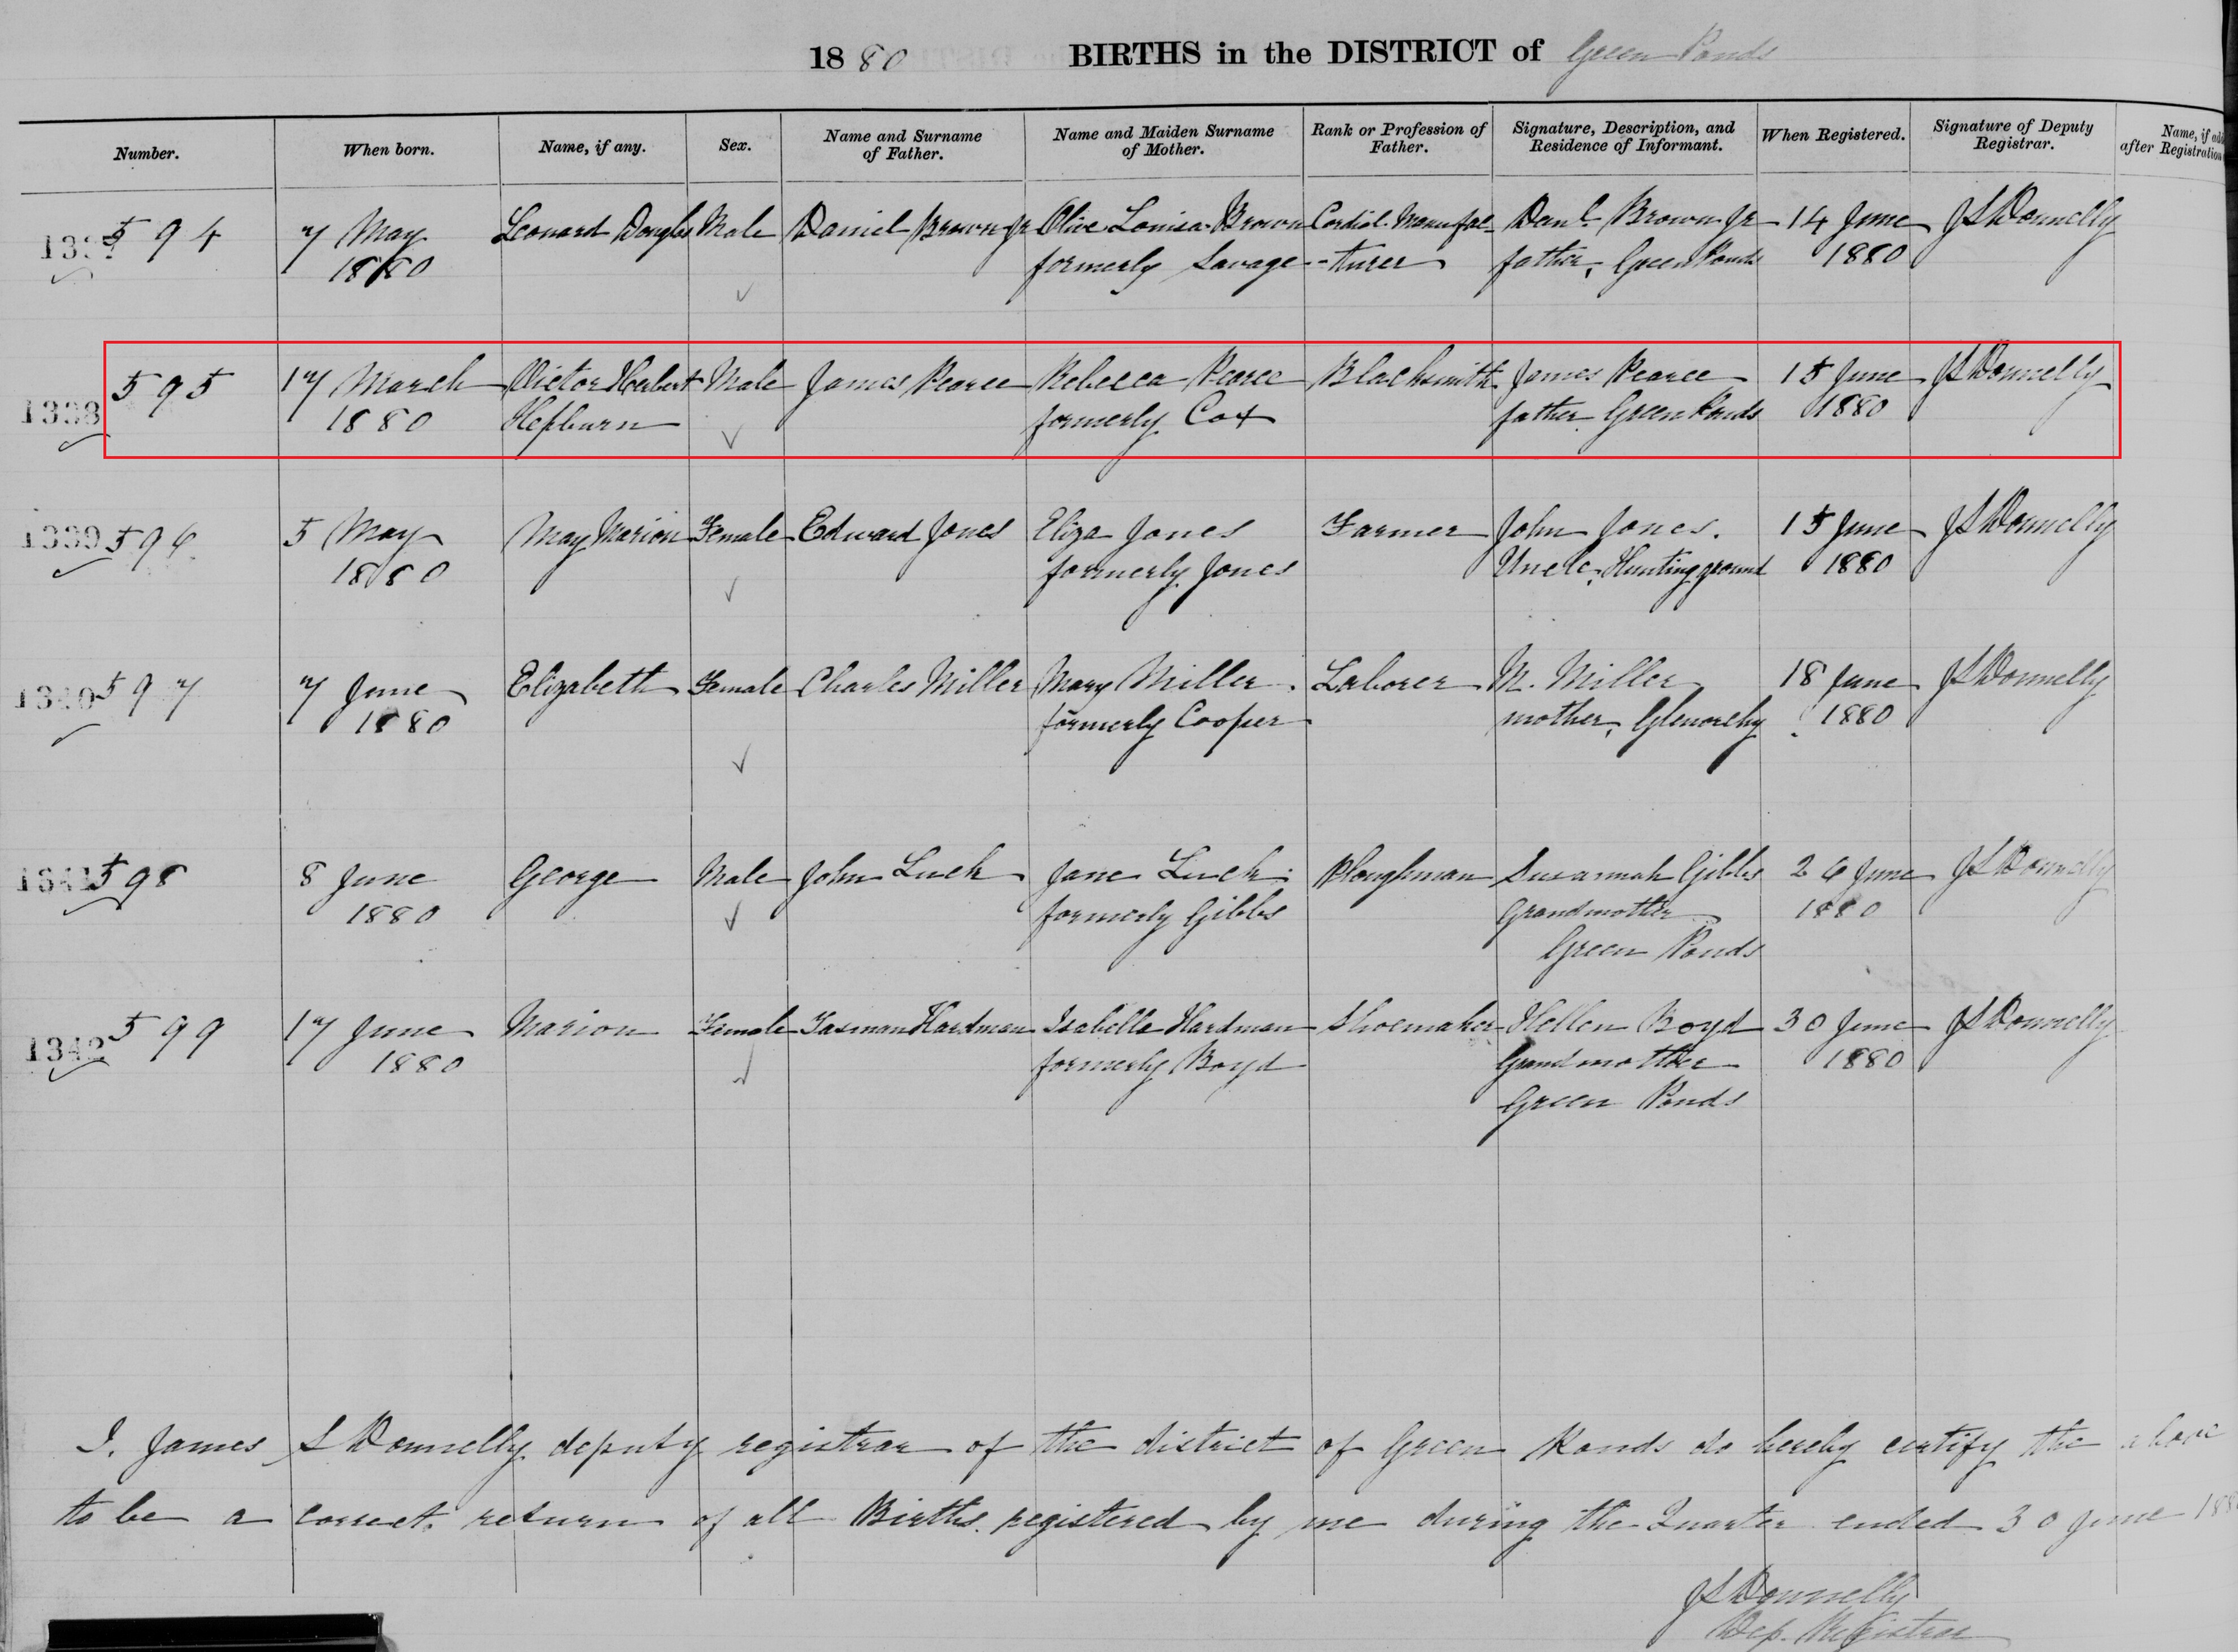 1880 BIRTHS in the DISTRICT of Green Ponds
Number. When born. Name, if any. Sex. Name and Surname of Father. Name and Maiden Surname of Mother. Rank or Profession of Father. Signature, Description, and Residence of Informant. When Registered. Signature of Deputy Registrar. Name, if after Registration
594 7 May Leonard Douglas Male Daniel Brown Jr Olive Louisa Brown Cordial Manufac- Danl. Brown Jr 14 June JSDonnelly
1880 formerly Savage -turer father, Green Ponds 1880
1338 595 17 March Victor Herbert Male James Pearce Rebecca Pearce Blacksmith James Pearce 15 June JSDonnelly
1880 Hepburn formerly Cox father Green Ponds 1880
1339 596 5 May May Marion Female Edward Jones Eliza Jones Farmer John Jones. 15 June JSDonnelly
1880 formerly Jones Uncle, Hunting ground 1880
1340 597 7 June Elizabeth Female Charles Miller Mary Miller Laborer M. Miller 18 June JSDonnelly
1880 formerly Cooper mother, Glenorchy 1880
1341 598 8 June George Male John Luck Jane Luck Ploughman Susannah Gibbs 26 June JSDonnelly
1880 formerly Gibbs Grandmother 1880
Green Ponds
1342 599 17 June Marion Female Tasman Hardman Isabella Hardman Shoemaker Hellen Boyd 30 June JSDonnelly
1880 formerly Boyd Grandmother 1880
Green Ponds
I. James S Donnelly deputy registrar of the district of Green Ponds do hereby certify the above
to be a correct return of all Births registered by me during the Quarter ended 30 June
JSDonnelly
Dep. Registrar